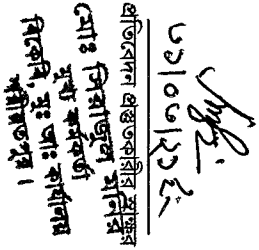 ৩১/০৩/২১ ইং
প্রতিবেদন প্রস্তুতকারীর স্বাক্ষর
মোঃ সিরাজুল মনির
মুখ্য কর্মকর্তা
বিকেবি, মুঃ আঃ কার্যালয়
শরীয়তপুর।